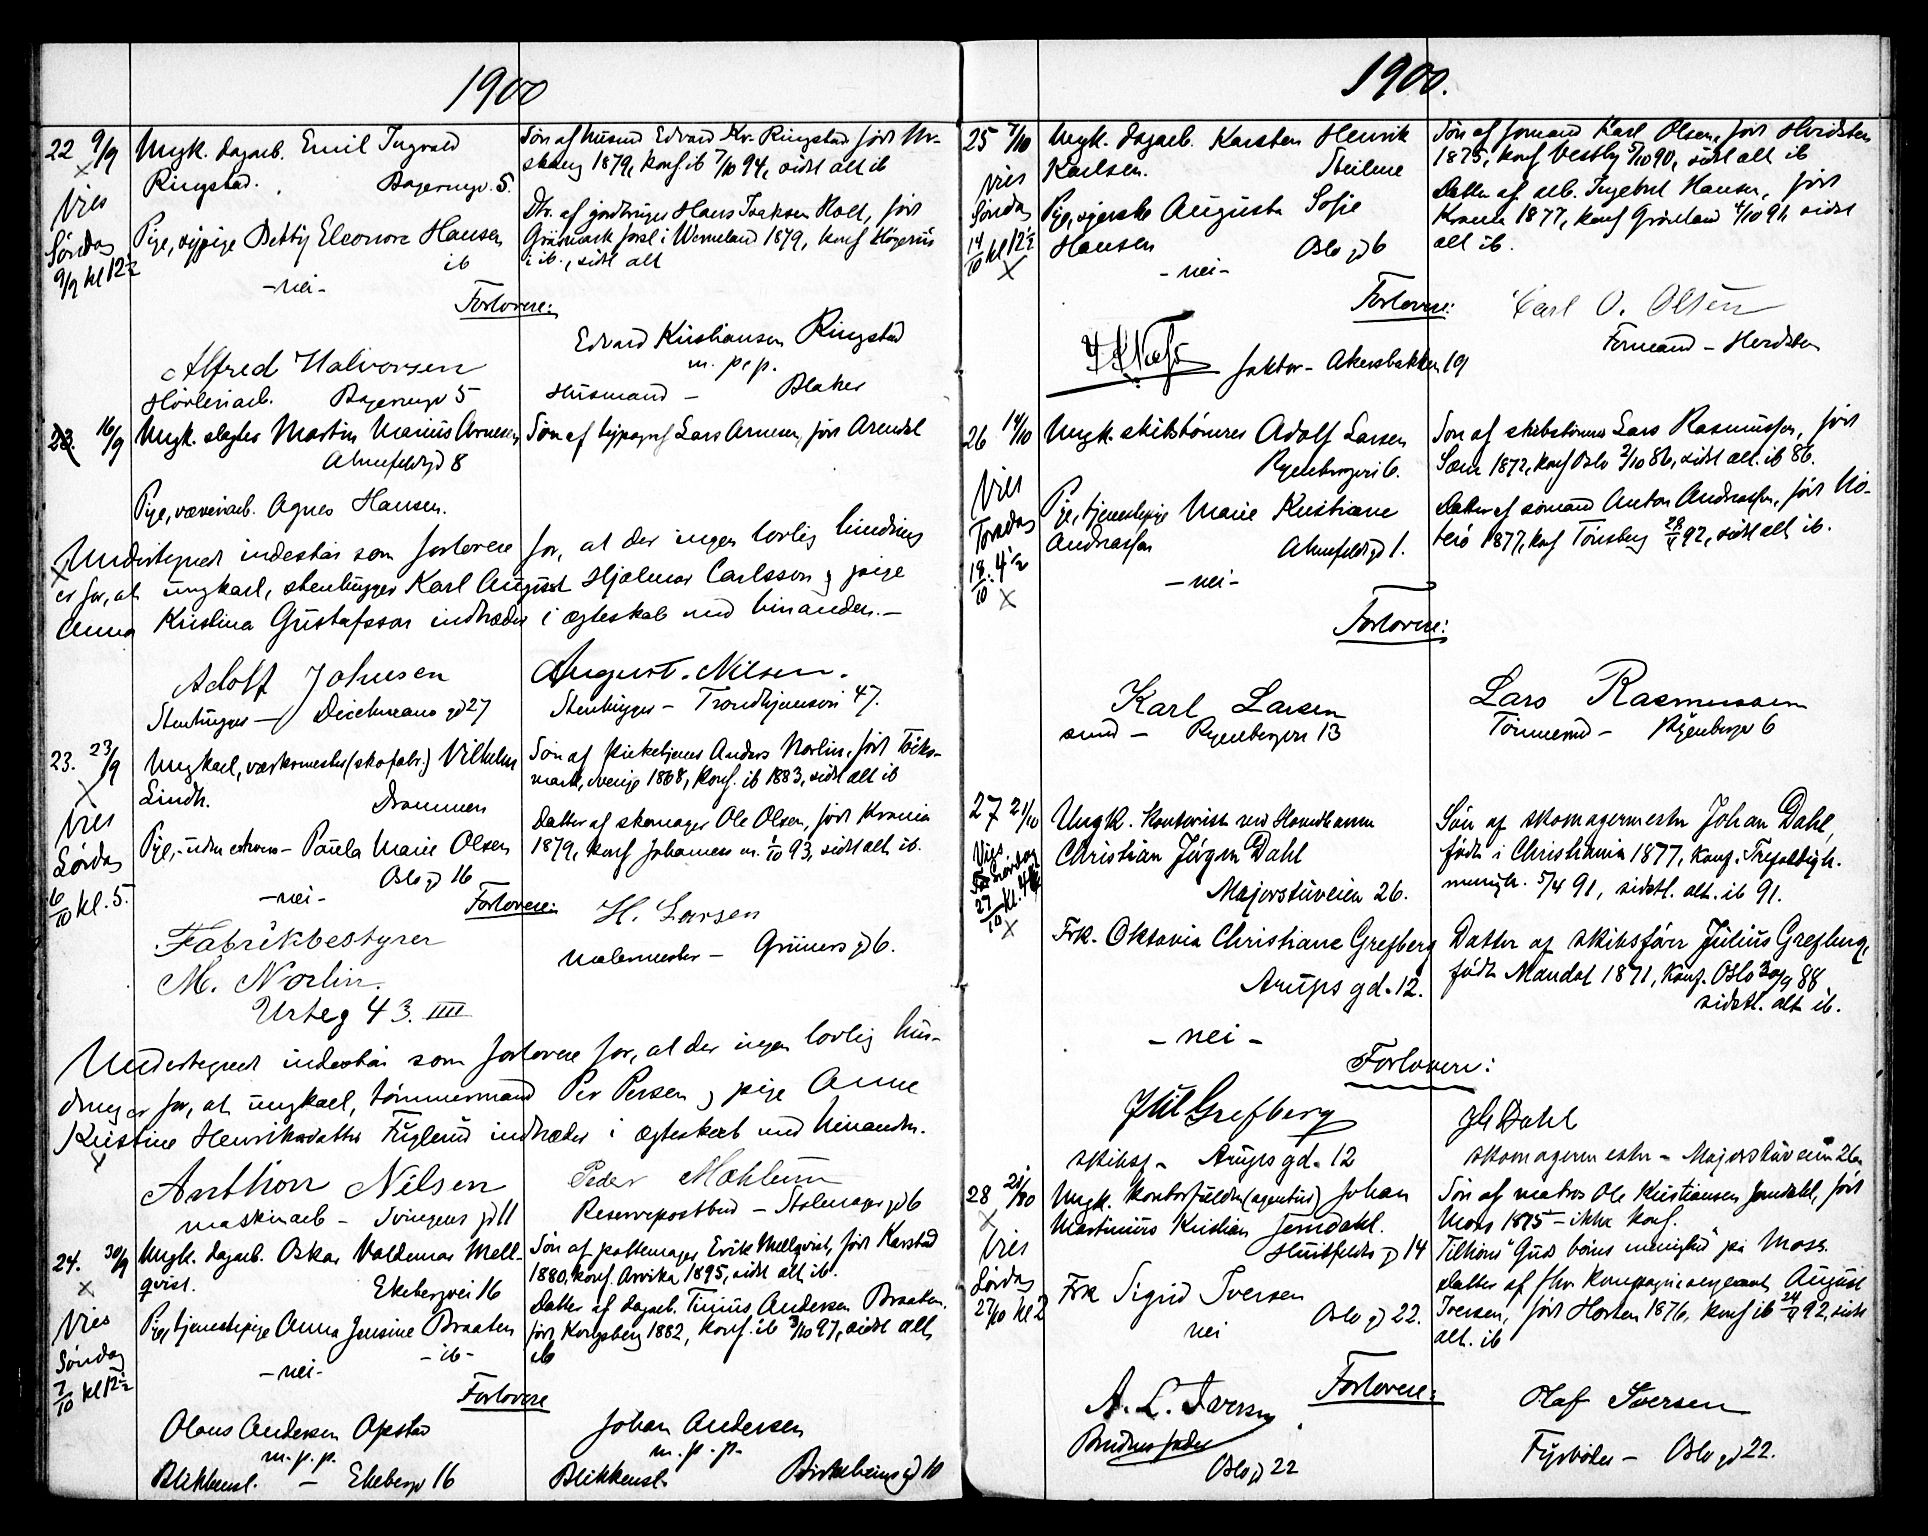 1900
22 9/9 Ungk. dagarb. Emil Ingvald
Ringstad. Bagerengv. 5.
Søn af husmd Edvard Kr. Ringstad født Ur-
skoug 1879, konf. ib 7/10 94, sidst alt ib
Vies
Søndag
9/9 kl 12½
Pige, sypige Betty Eleonora Hansen
ib
Dtr. af gjordbruger Hans Isaksen Holt, født
Gräsmark sogn i Wermeland 1879, konf
i ib., sidst alt
-nei-
Forlovere:
Edvard Kristiansen Ringstad
m. p. p.
Husmand - Blaker
Alfred Halvorsen
Høvleriarb. Bagerengv 5
23. 16/9 Ungk. slagter Martin Marius Arnesen
Ahnefeldtgd 8
Søn af typograf Lars Arnesen, født Arendal
Pige, væveriarb. Agnes Hansen.
Undertegnet indestaar som forlovere for, at der ingen lovlig hindring
er for, at ungkarl, stenhugger Karl August Hjalmar Carlsson og pige
Anna Kristina Gustafsson indtræder i ægteskab med hinanden.-
Adolf Johnsen
Stenhugger - gd 27
August. Nilsen.
Stenhugger - Trondhjemsvei 47.
23. 23/9 Ungkarl, værksmester (skofabr.) Vilhelm
Lindh. Drammen
Søn af Kirketjener Anders Norlin, født Töks-
mark, sverige 1868, konf. ib 1883, sidst alt ib
Vies
Lørdag
6/10 kl. 5.
Pige, - uden erhverv - Paula Marie Olsen
Oslo gd 16
Datter af skomager Ole Olsen, født Krania
1879, konf Johannes m. 1/10 93, sidst alt ib.
-nei-
Forlovere:
Fabrikbestyrer
M. Norlin.
Urteg 43. IIII
H. Larsen
Malermester - Grüners gd 6.
Undertegnet indestaar som forlovere for, at der ingen lovlig hin-
dring er for, at ungkarl, tømmermand Per Persen og pige Anne
Kristine Henriksdatter Fuglerud indtræder i ægteskab med hinanden.
Anthon Nilsen
maskinarb - Svingens gd 11
Peder Mæhlum
Reservepostbud - Stolmager gd 6
24. 30/9 Ungk. dagarb. Oskar Valdemar Mell-
qvist. Ekebergvei 16
Søn af pottemager Erik Mellqvist, født Karstad
1880, konf. Arvika 1895, sidst alt ib.
Vies
Søndag
7/10 kl 12½
Pige, tjenestepige Anna Jensine Braaten
-ib-
Datter af dagarb. Tinius Andersen Braaten.
født Kongsberg 1882, konf. ib 3/10 97, sidst alt
ib
-nei-
Forlovere
Olaus Andersen Opstad
m. p. p.
Blikkensl. - Ekebergv 16
Johan Andersen
m. p. p.
Blikkensl. gd 10
1900.
25 7/10 Ungk. dagarb. Karsten Henrik
Karlsen. Steilene
Søn af formand Karl Olsen, født Hvidsten
1875, konf Vestby 5/10 90, sidst alt ib
Vies
Søndag
14/10 kl 12½
Pige, syerske Augusta Sofie
Hansen Oslo gd 6
Datter af arb. Ingebret Hansen, født
Krania 1877, konf Grønland 4/10 91, sidst
alt ib.
-nei-
Forlovere:
faktor - Akersbakken 19
Carl O. Olsen
Formand - Hvidsten
26 14/10 Ungk. skibstømrer Adolf Larsen
Ryenbergvei 6.
Søn af skibstømrer Lars Rasmussen, født
Sæm 1872, konf Oslo 2/10 86, sidst alt. ib 86.
Vies
Torsdag
18/10. 4½
Pige, tjenestepige Marie Kristiane
Andreassen Ahnefeldtgd 1.
Datter af sømand Anton Andreassen, født Nø-
terø 1877, konf Tønsberg 92, sidst alt ib.
-nei-
Forlovere:
Karl Larsen
smed - Ryenbergvei 13
Lars Rasmussen
Tømmermd - Ryenbergv 6
27 21/10 Ungk. Kontorist ved Hovedbanen
Christian Jørgen Dahl
Majorstuveien 26.
Søn af skomagermester Johan Dahl,
født i Christiania 1877, konf. Trefoldigh.
menigh. 5/4 91, sidstl. alt. ib 91.
Vies
Lørdag
27/10 kl. 4
Frk. Oktavia Christiane Grefberg
Arups gd. 12.
Datter af skibsfører Julius Grefberg,
født Mandal 1871, konf. Oslo 30/9 88
sidstl. alt ib.
-nei-
Forlovere:
Jul Grefberg
skibsf - Arups gd. 12
JH Dahl
skomagermester - Majorstuveien 26
28 Ungk. kontorfuldm (agentur) Johan
Martinius Kristian Jemdahl.
Huitfeldts gd 14
Søn af matros Ole Kristiansen Jemdahl, født
Moss 1875 - ikke konf.
Tilhører "Guds børns menighed" på Moss.
Vies
Lørdag
27/10 kl 2
Frk Sigrid Iversen
Oslo gd 22.
Datter af fhv. kompagnisergeant August
Iversen, født Horten 1876, konf ib 92, sidst
alt. ib
nei
Forlovere:
A. L. Iversen
Brudens fader
Oslo gd 22
Olaf Iversen
Fyrbøder - Oslo gd 22.